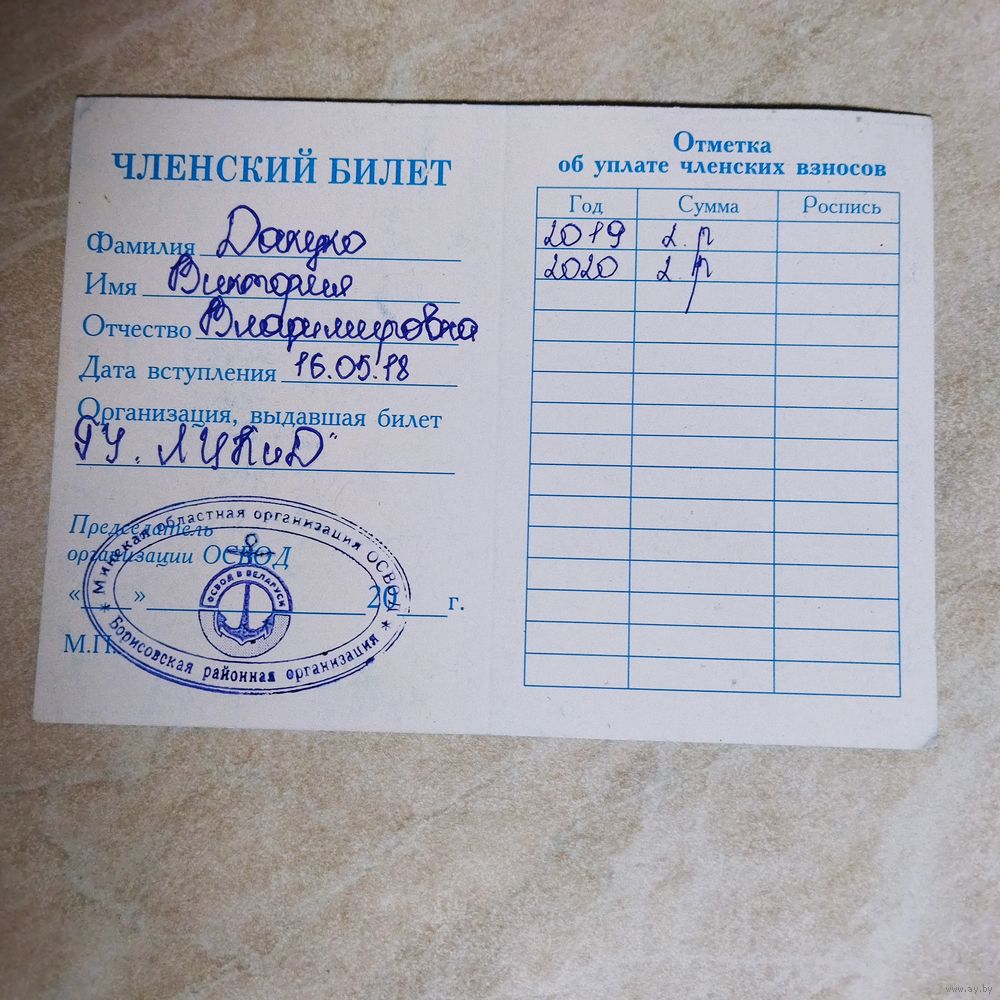 ЧЛЕНСКИЙ БИЛЕТ
Фамилия
Имя Виктория
Отчество Владимировна
Дата вступления 16.05.18
Организация, выдавшая билет
ГУ "ЛЦКиД"
Председатель
организации ОСВОД
« » 20 г.
М.П.
* Минская областная организация ОСВОД *
Борисовская районная организация
ОСВОД В БЕЛАРУСИ
Отметка
об уплате членских взносов
Год Сумма Роспись
2019 2 р
2020 2 р
www.ay.by